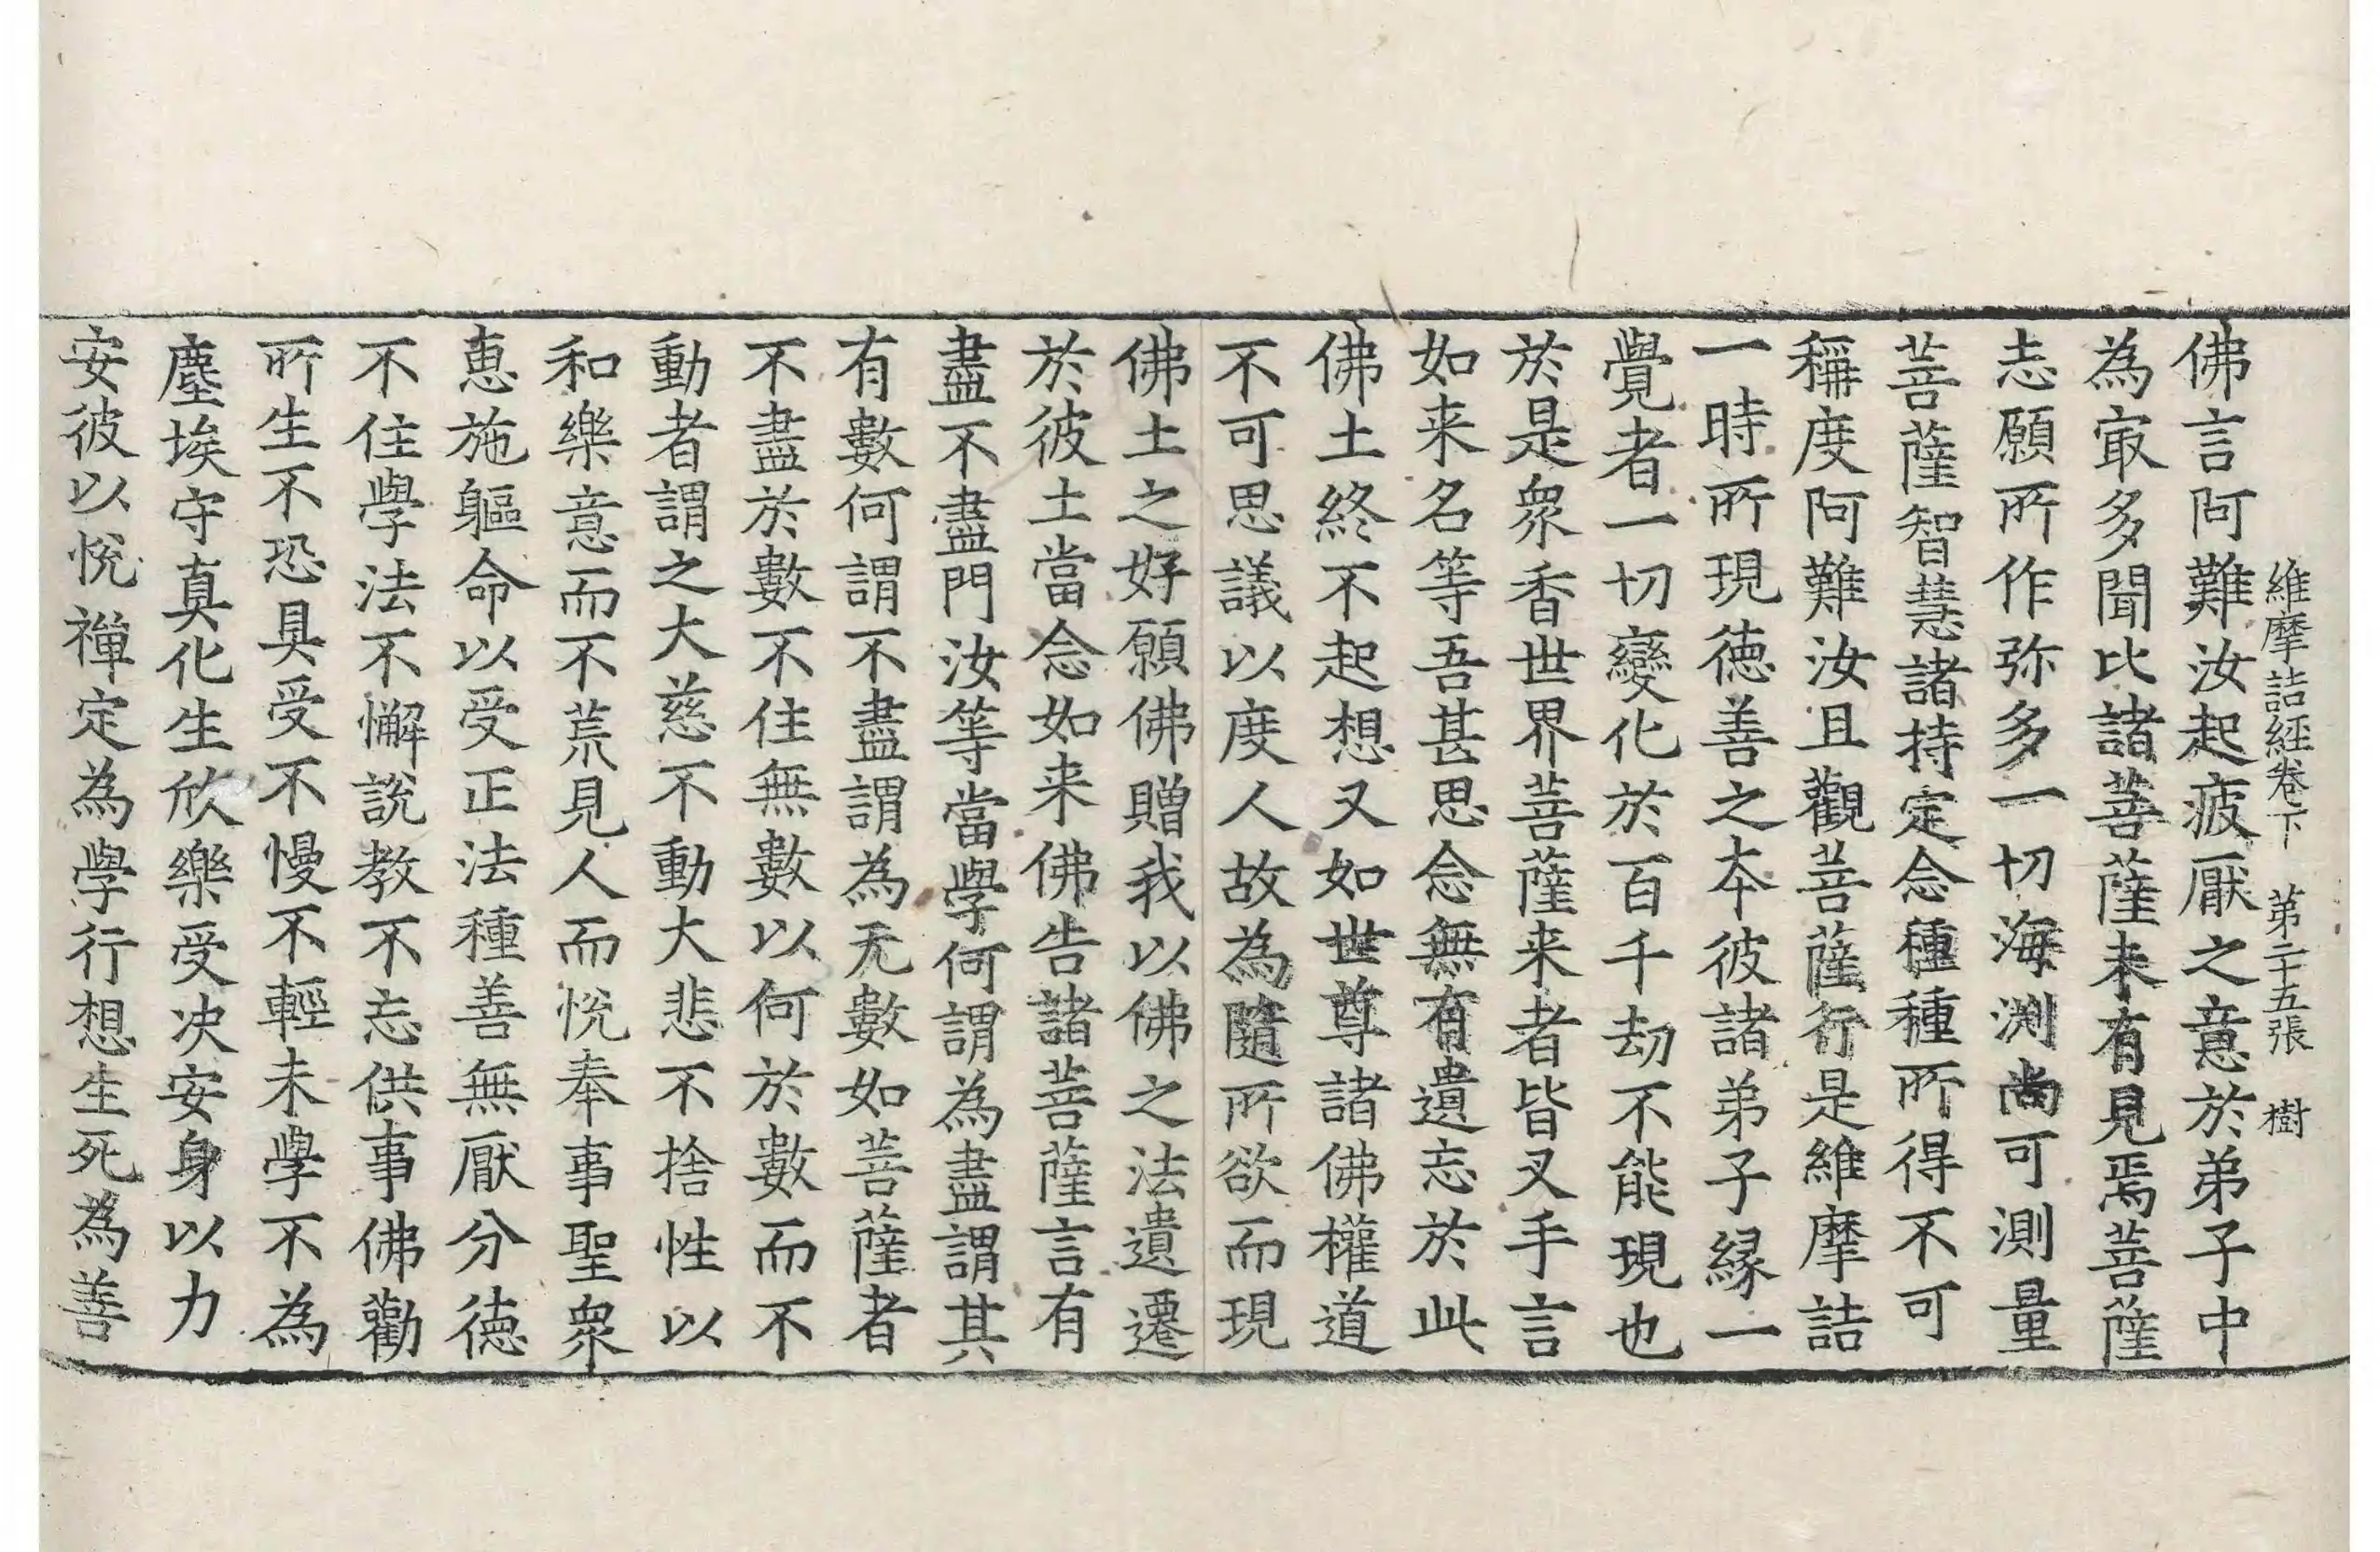 維摩詰經卷下　第二十五張　樹
佛言阿難汝起疲厭之意於弟子中
為㝡多聞比諸菩薩未有見焉菩薩
志願所作弥多一切海渊尚可測量
菩薩智慧諸持定念種種所得不可
稱度阿難汝且觀菩薩行是維摩詰
一時所現德善之本彼諸弟子縁一
覺者一切變化於百千劫不能現也
於是衆香世界菩薩来者皆叉手言
如来名等吾甚思念無有遺忘於此
佛土終不起想又如世尊諸佛權道
不可思議以度人故為隨所欲而現
佛土之好願佛贈我以佛之法遺遷
於彼土當念如来佛告諸菩薩言有
盡不盡門汝等當學何謂為盡謂其
有數何謂不盡謂為无數如菩薩者
不盡於數不住無數以何於數而不
動者謂之大慈不動大悲不捨性以
和樂意而不荒見人而悅奉事聖衆
惠施軀命以受正法種善無厭分德
不住學法不懈說教不忘供事佛勸
所生不恐具受不慢不輕未學不為
塵埃守真化生欣樂受决安身以力
安彼以悅禪定為學行想生死為善